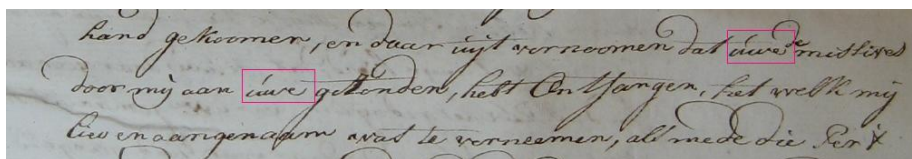 hand gekoomen, en daar uijt vernoomen dat uwe de missives
door mij aan uwe gezonden, hebt Ontfangen, het welk mij
lief en aangenaam wat te verneemen, als mede die Per